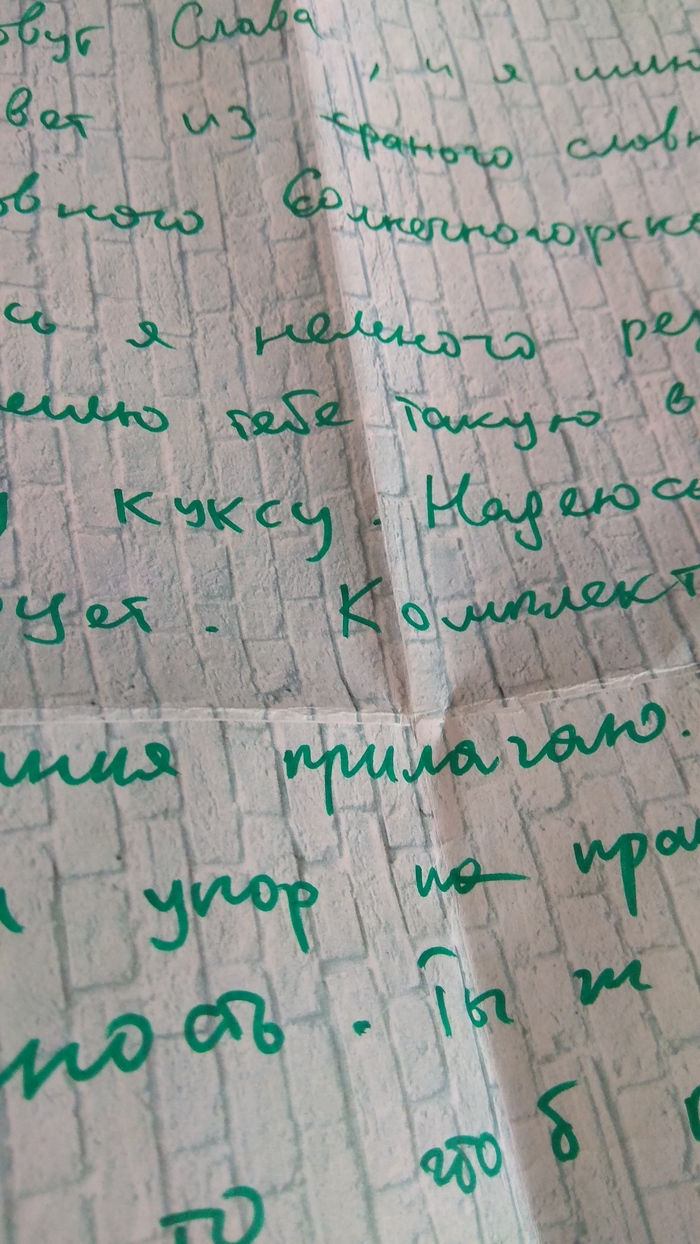 овут Слава, и я шин
вет из сраного словн
овного Солнечногорска
сь я немного рез
емлю тебе такую в
у куксу. Надеюсь
ует. Комплект
ания прилагаю.
упор на пра
ность. Ты ж
то что б